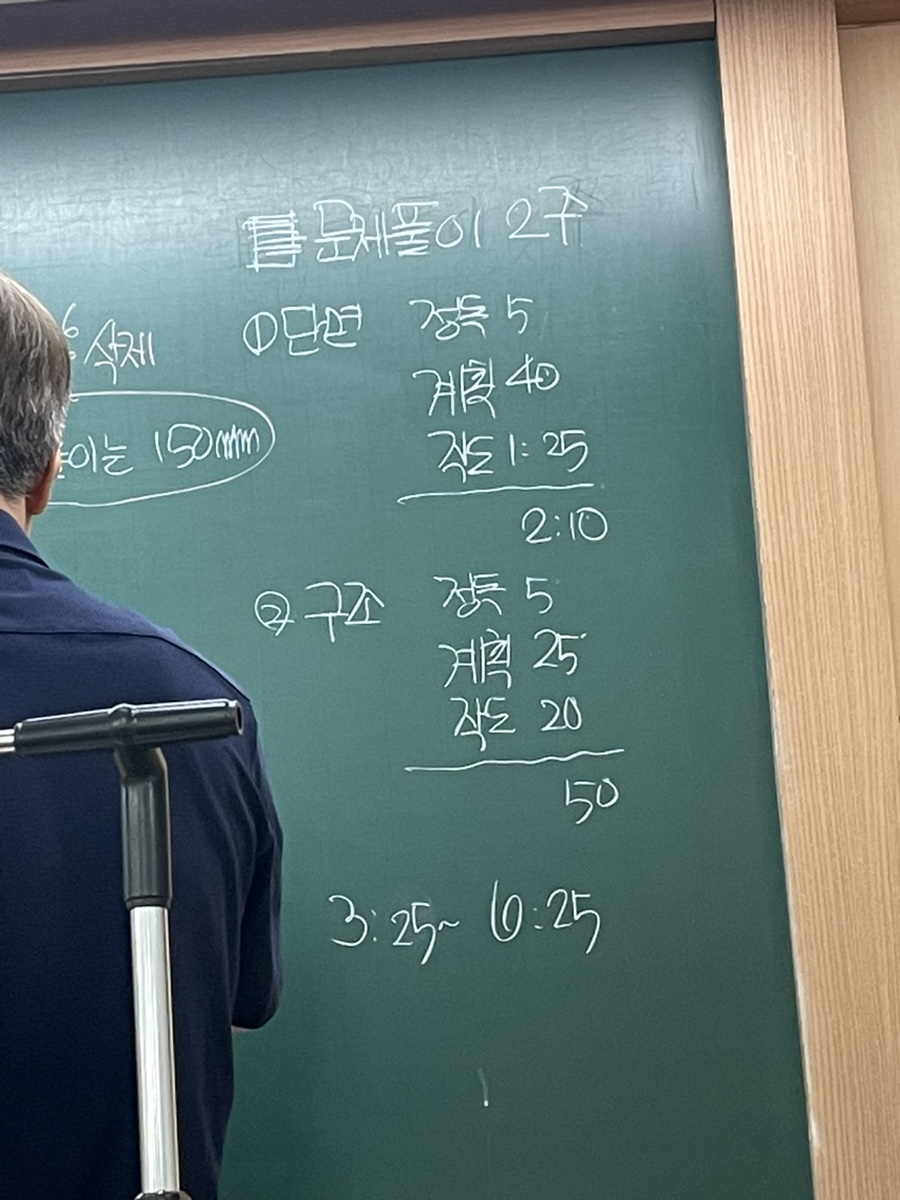 문제풀이 2주
6 삭제
이는 150mm
① 단면 정독 5
계획 40
작도 1:25
2:10
② 구조 정독 5
계획 25
작도 20
50
3:25~ 6:25